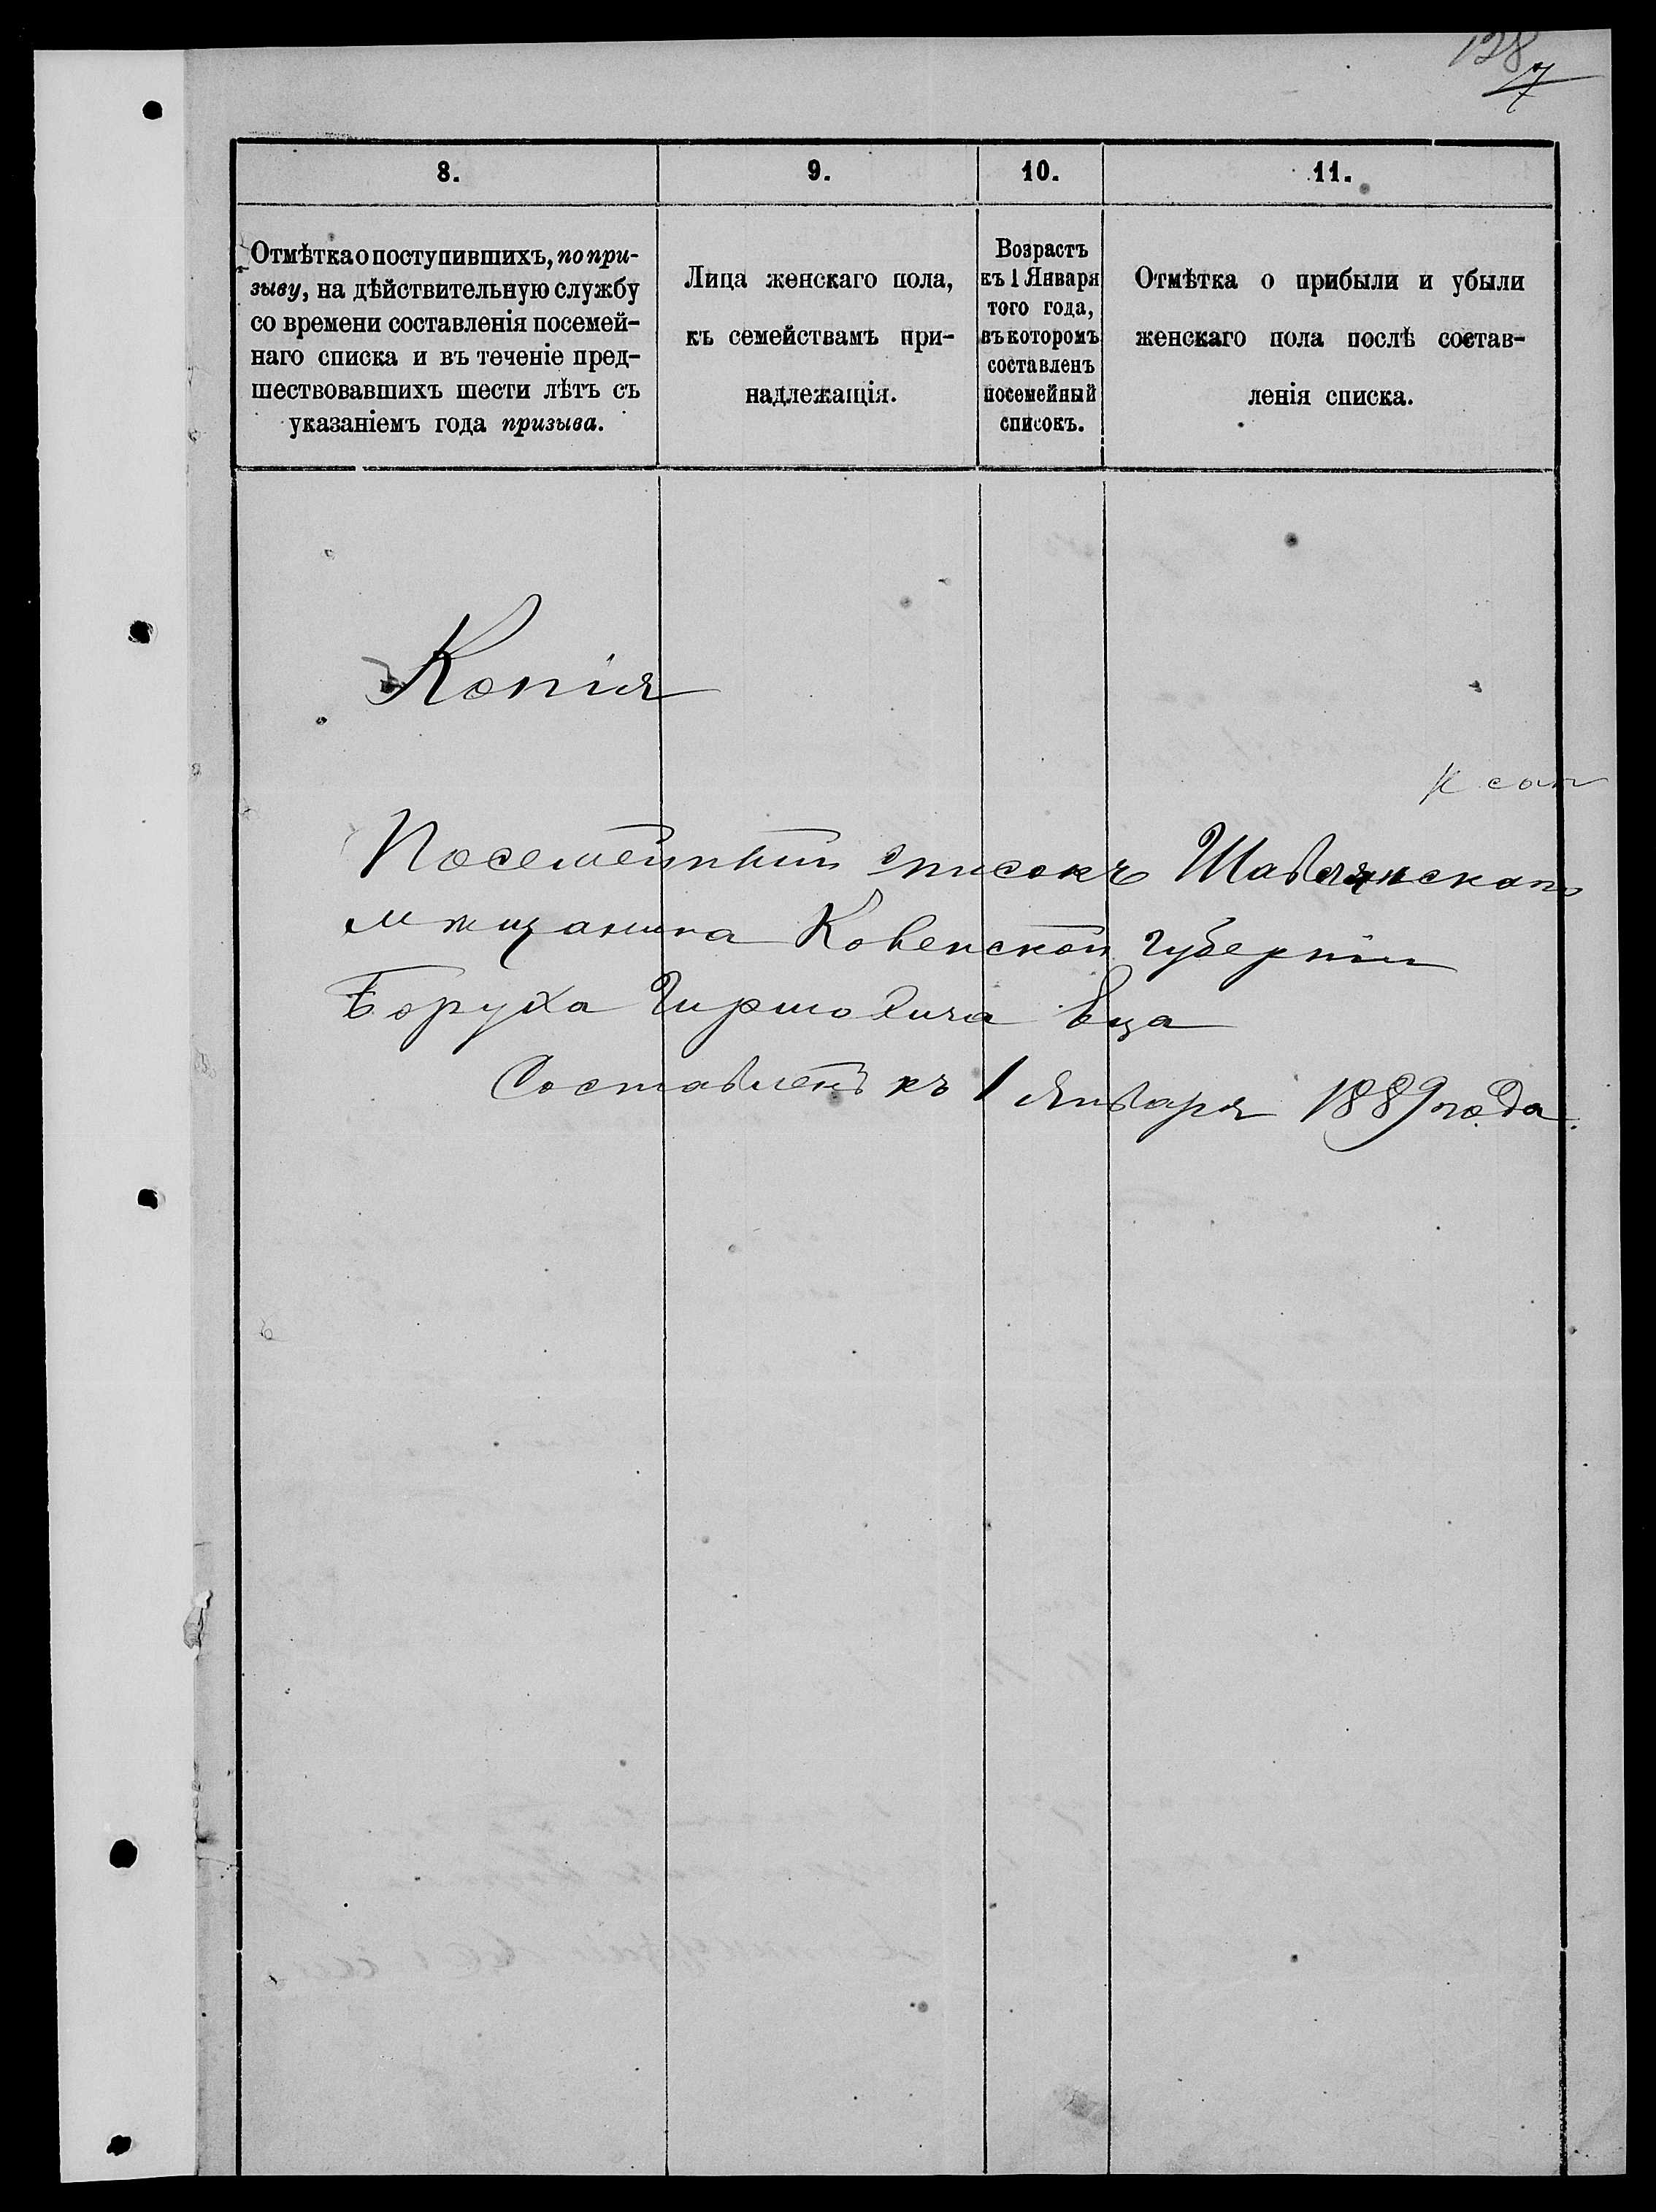 128
7
8.
9.
10.
11.
Отмѣтка о поступившихъ, по при-
зыву, на дѣйствительную службу
со времени составленія посемей-
наго списка и въ теченіе пред-
шествовавшихъ шести лѣтъ съ
указаніемъ года призыва.
Лица женскаго пола,
къ семействамъ при-
надлежащія.
Возрастъ
къ 1 Января
того года,
въ которомъ
составленъ
посемейный
списокъ.
Отмѣтка о прибыли и убыли
женскаго пола послѣ состав-
ленія списка.
Копія
Посемейный списокъ Шавлянскаго
мѣщанина Ковенской губерніи
Боруха Гиршовича
Составленъ къ 1 Января 1889 года.